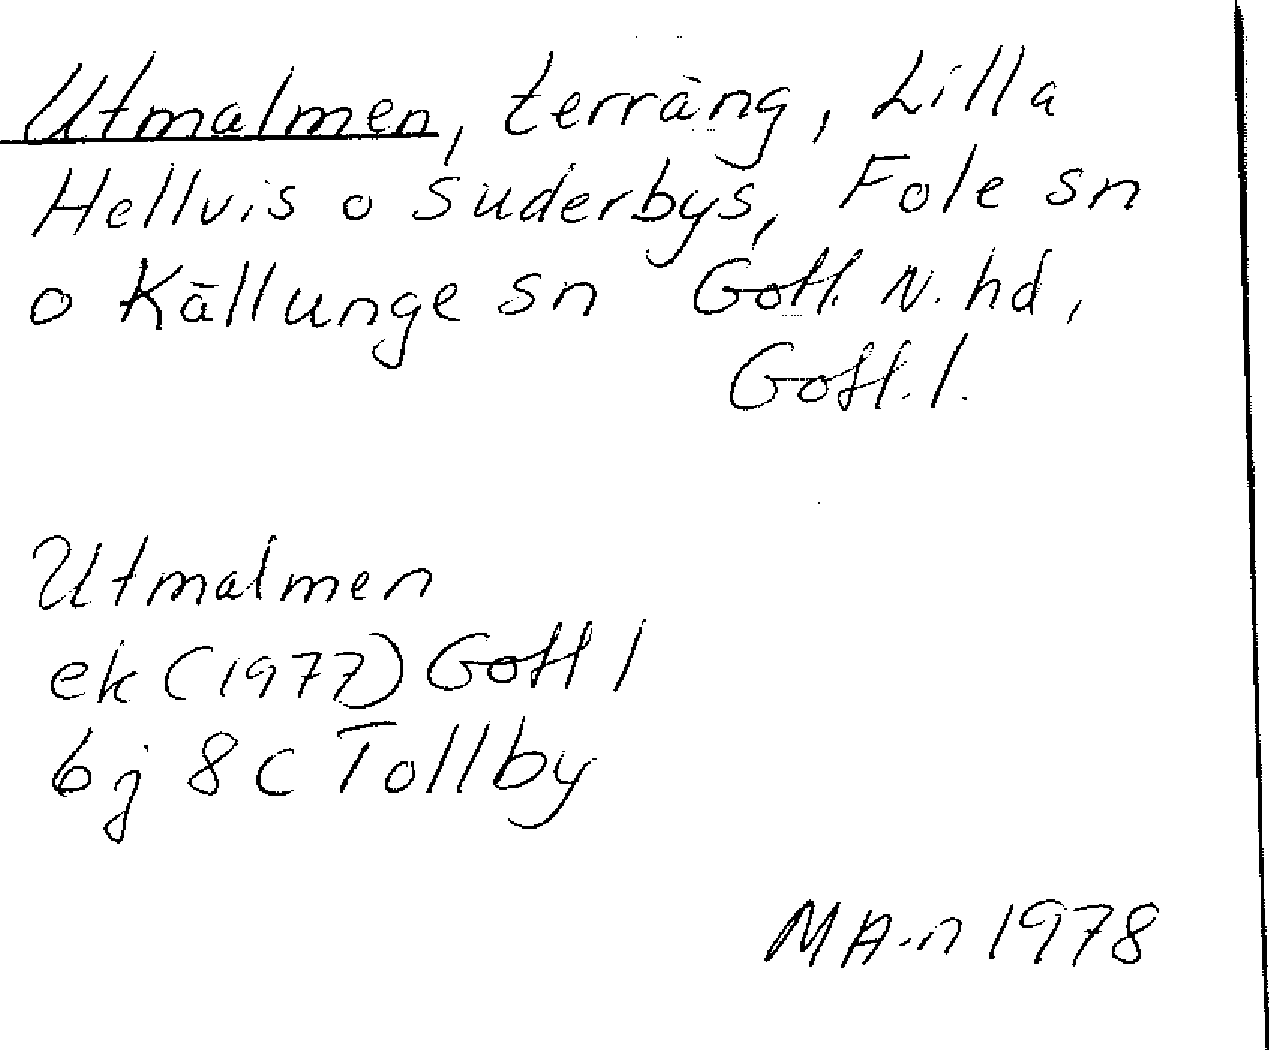 Utmalmen, terräng, Lilla
Hellvis o Suderbys, Fole sn
o Källunge sn Gotl. N. hd,
Gotl. l.
Utmalmen
ek (1977) Gotl l
bj 8c Tollby
MA-n 1978